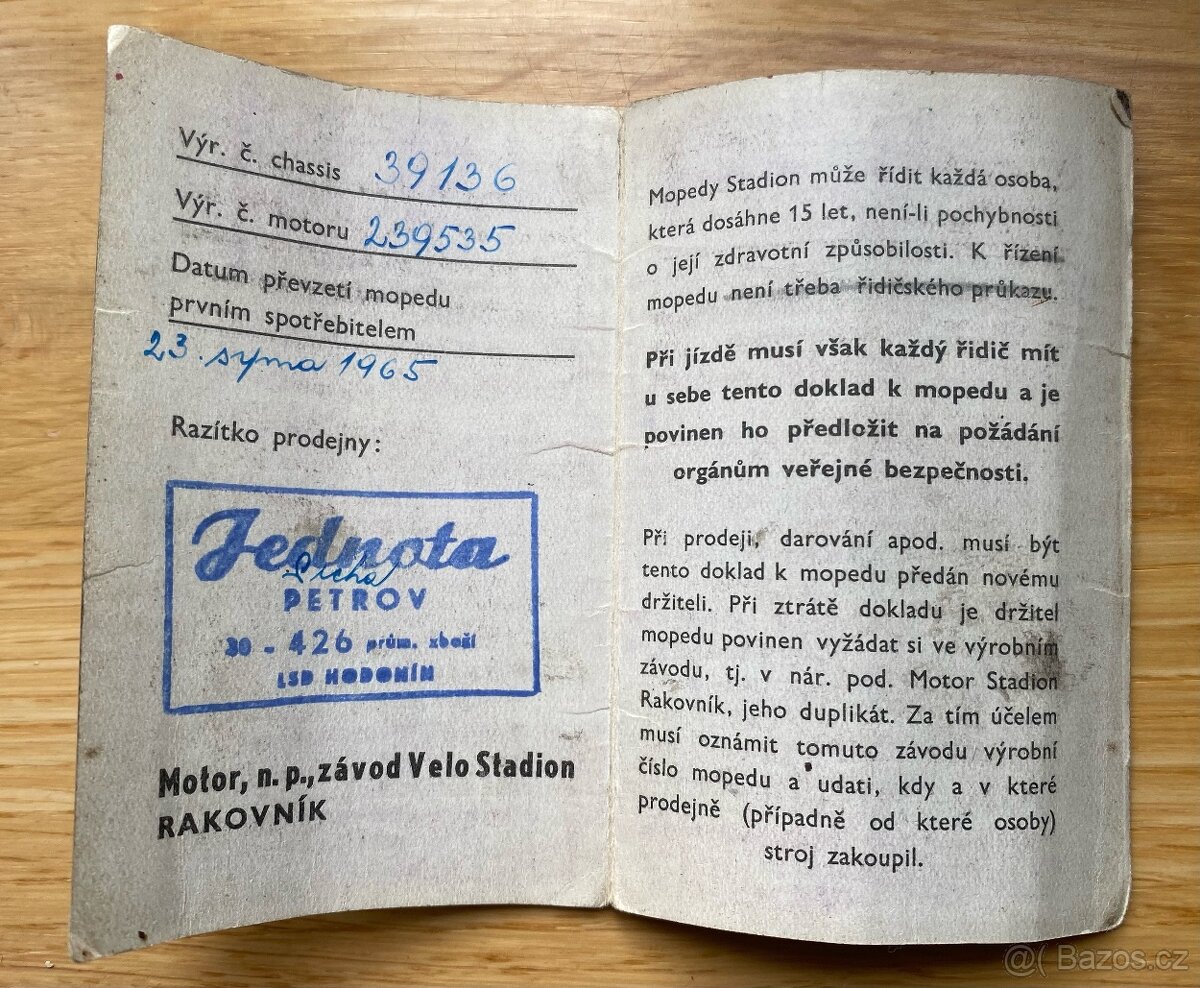 Výr. č. chassis 39136
Výr. č. motoru 239535
Datum převzetí mopedu
prvním spotřebitelem
23. srpna 1965
Razítko prodejny:
Jednota
PETROV
30 - 426 prům. zboží
LSD HODONÍN
Motor, n. p., závod Velo Stadion
RAKOVNÍK
Mopedy Stadion může řídit každá osoba,
která dosáhne 15 let, není-li pochybnosti
o její zdravotní způsobilosti. K řízení
mopedu není třeba řidičského průkazu.
Při jízdě musí však každý řidič mít
u sebe tento doklad k mopedu a je
povinen ho předložit na požádání
orgánům veřejné bezpečnosti.
Při prodeji, darování apod. musí být
tento doklad k mopedu předán novému
držiteli. Při ztrátě dokladu je držitel
mopedu povinen vyžádat si ve výrobním
závodu, tj. v nár. pod. Motor Stadion
Rakovník, jeho duplikát. Za tím účelem
musí oznámit tomuto závodu výrobní
číslo mopedu a udati, kdy a v které
prodejně (případně od které osoby)
stroj zakoupil.
@( Bazos.cz